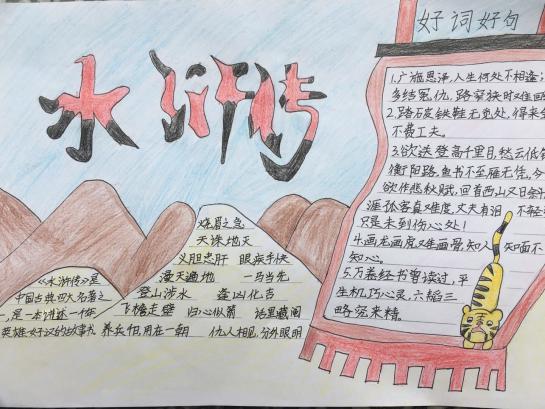 水浒传
好词好句
1.广施恩泽,人生何处不相逢;
多结冤仇,路窄狭时难
2.踏破铁鞋无觅处,得来全
不费工夫。
3.欲送登高千里目,愁云低锁
衡阳路。鱼书不至雁无凭,今
欲作悲秋赋。回首西山又日斜
涯孤客真难度,丈夫有泪不轻
只是未到伤心处!
4.画龙画虎难画骨,知人知面不
知心。
5.万卷经书曾读过,平
生机巧心灵,六韬三
略究来精。
燃眉之急
天诛地灭
义胆忠肝 眼疾手快
漫天遍地 一马当先
登山涉水 逢凶化吉
飞檐走壁 归心似箭 话里藏阄
养兵千日,用在一朝 仇人相见,分外眼明
《水浒传》是
中国古典四大名著之
一,是一本讲述一个
英雄好汉的故事书